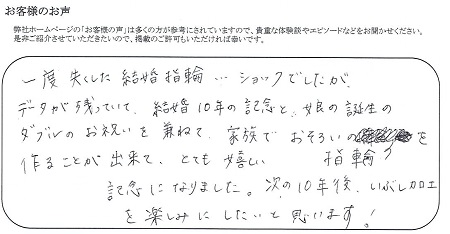 お客様のお声
弊社ホームページの「お客様の声」は多くの方が参考にされていますので、貴重な体験談やエピソードなどをお聞かせください。
是非ご紹介させていただきたいので、掲載のご許可もいただければ幸いです。
一度失くした結婚指輪…ショックでしたが、
データが残っていて、結婚10年の記念と、娘の誕生の
ダブルのお祝いを兼ねて、家族でおそろいの を
指輪
作ることが出来て、とても嬉しい
記念になりました。次の10年後、いぶし加工
を楽しみにしたいと思います！